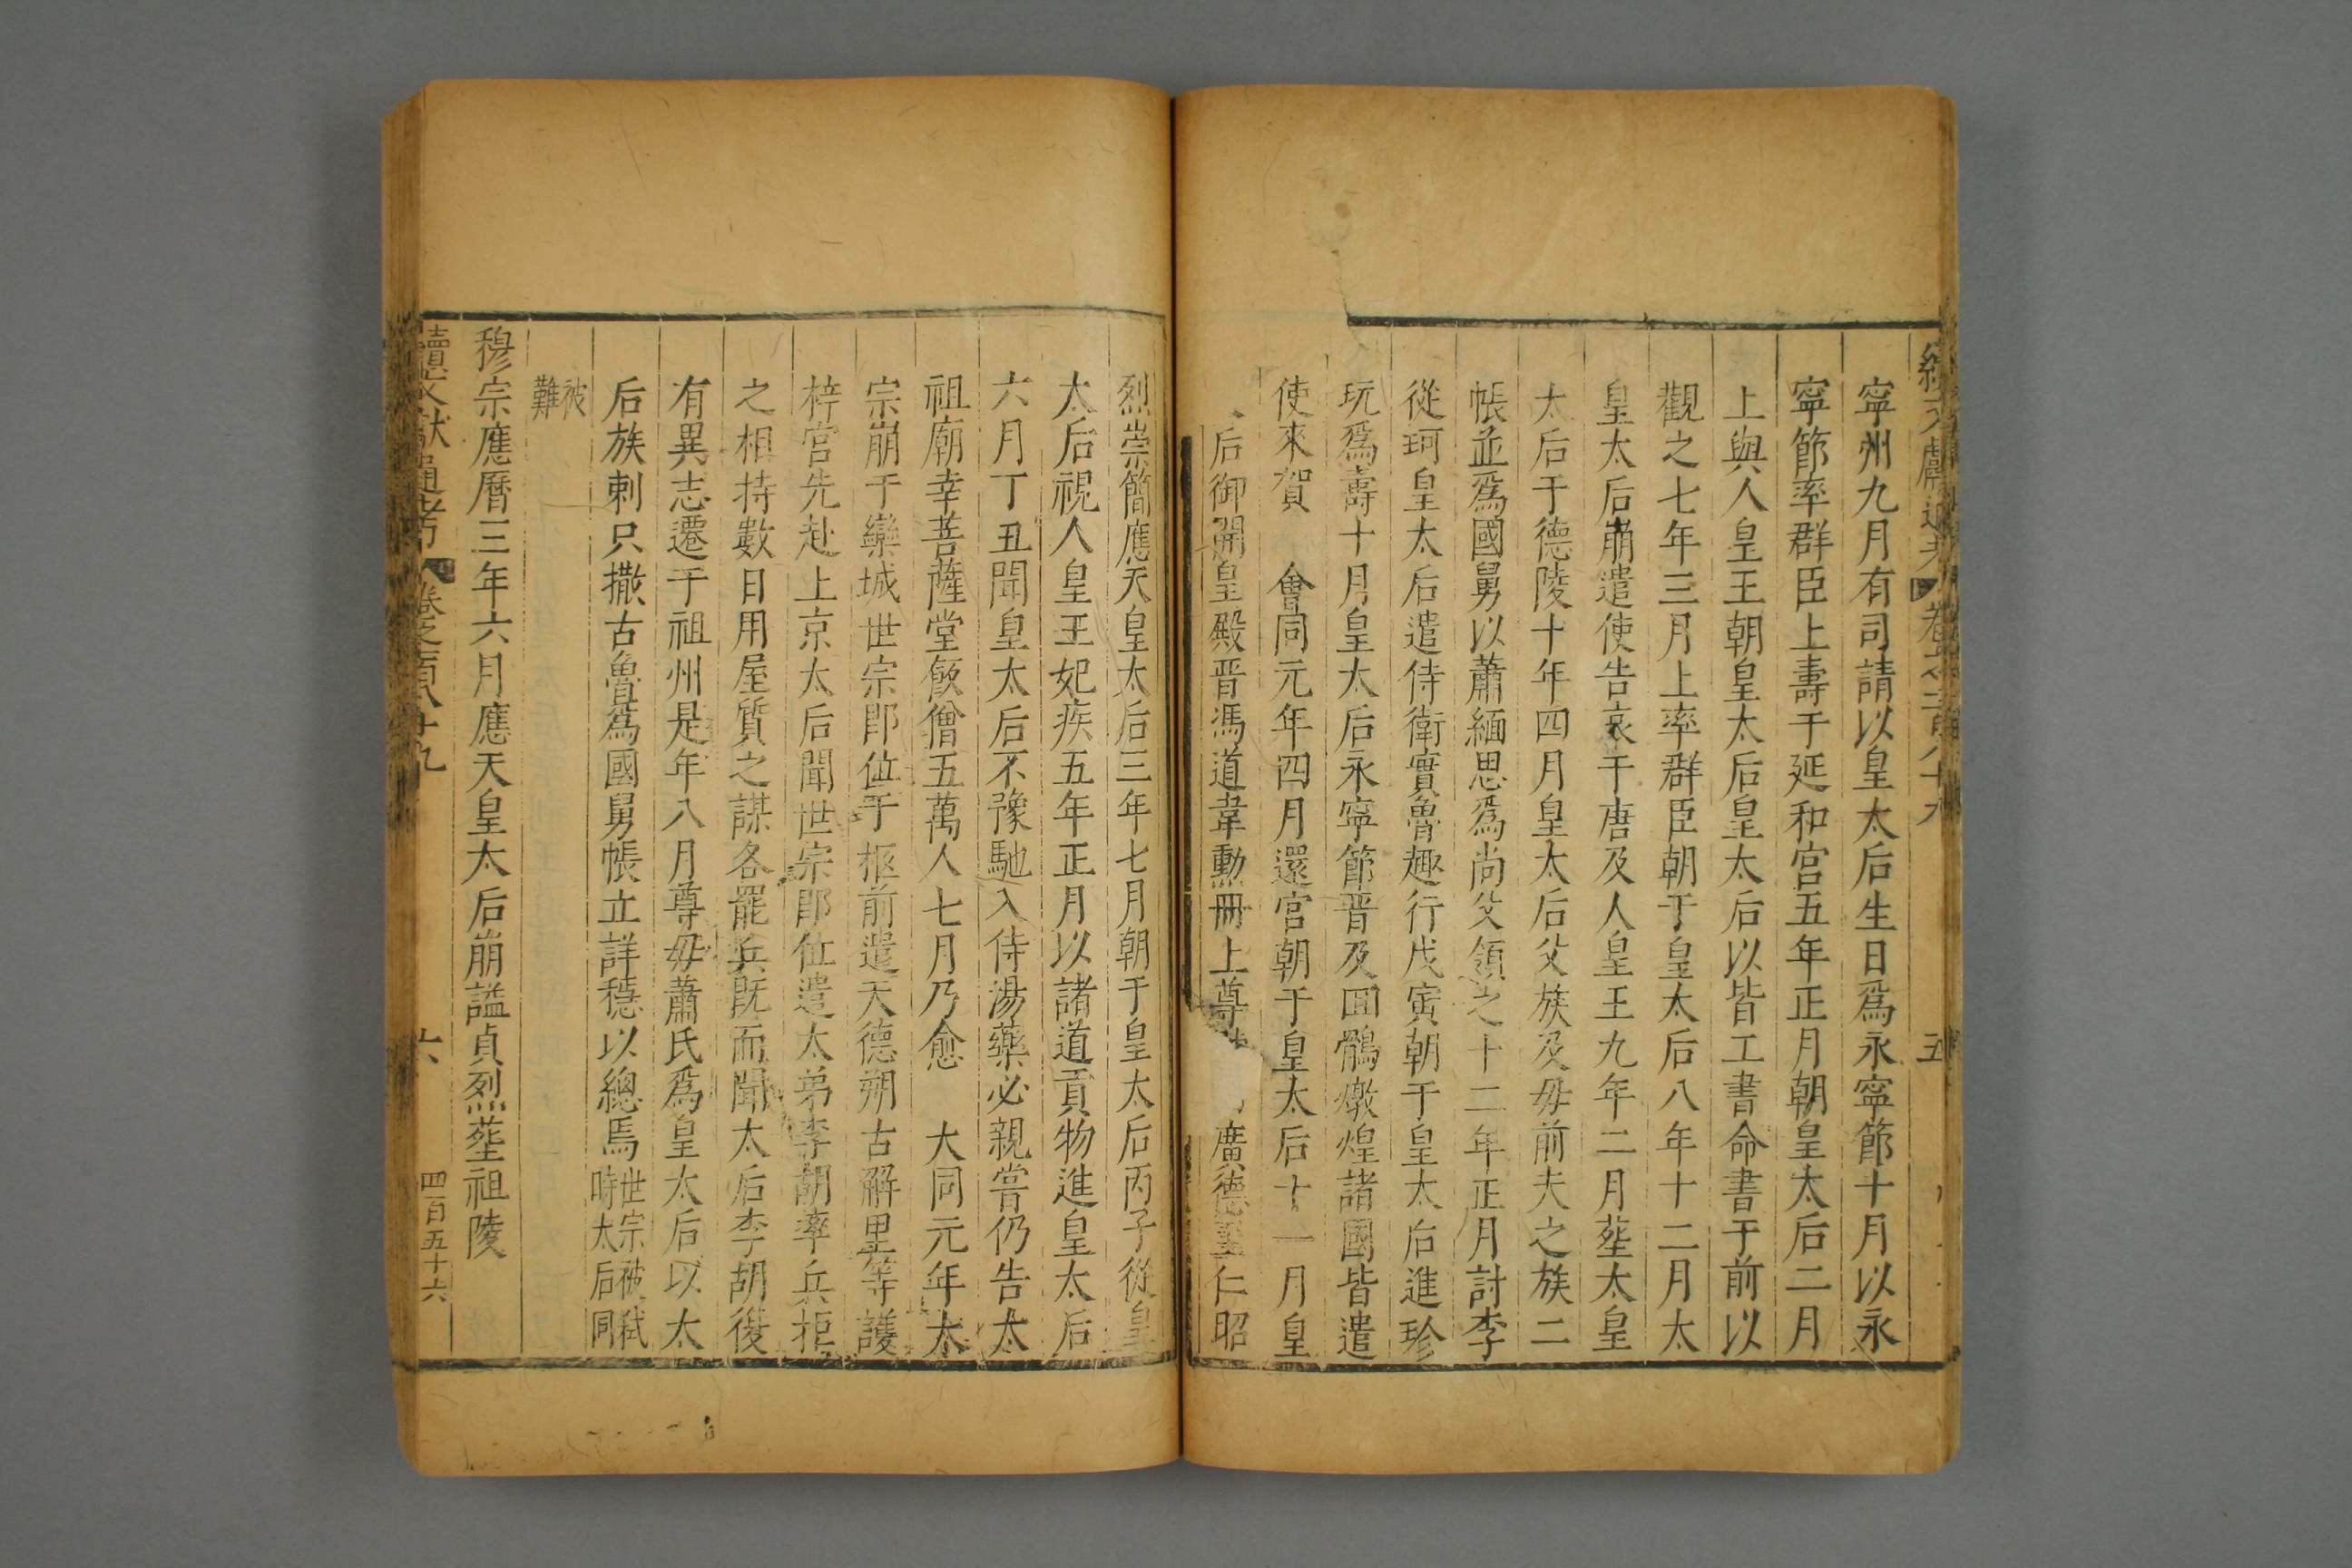 寧州九月有司請以皇太后生日爲永寧節十月以永
寧節率群臣上壽于延和宮五年正月朝皇太后二月
上與人皇王朝皇太后皇太后以皆工書命書于前以
觀之七年三月上率群臣朝于皇太后八年十二月太
皇太后崩遣使告哀于唐及人皇王九年二月塟太皇
太后于德陵十年四月皇太后父族及毋前夫之族二
帳並爲國舅以蕭緬思爲尚父領之十二年正月討李
從珂皇太后遣侍衛實魯趣行戊寅朝于皇太后進珍
玩爲壽十月皇太后永寧節晋及囬鶻燉煌諸國皆遣
使來賀 會同元年四月還宮朝于皇太后十一月皇
后御開皇殿晋馮道韋勲冊上尊 廣德至仁昭
烈崇簡應天皇太后三年七月朝于皇太后丙子從皇
太后視人皇王妃疾五年正月以諸道貢物進皇太后
六月丁丑聞皇太后不豫馳入侍湯藥必親嘗仍告太
祖廟幸菩薩堂飯僧五萬人七月乃愈 大同元年太
宗崩于欒城世宗即位于柩前遣天德朔古解里等護
梓宮先赴上京太后聞世宗即位遣太弟李胡率兵拒
之相持數日用屋質之謀各罷兵旣而聞太后李胡復
有異志遷于祖州是年八月尊毋蕭氏爲皇太后以太
后族剌只撒古魯爲國舅帳立詳穩以總焉世宗被弒
時太后同
被
難
穆宗應曆三年六月應天皇太后崩謚貞烈塟祖陵
續文獻通考 卷之一百八十九 六 四百五十六